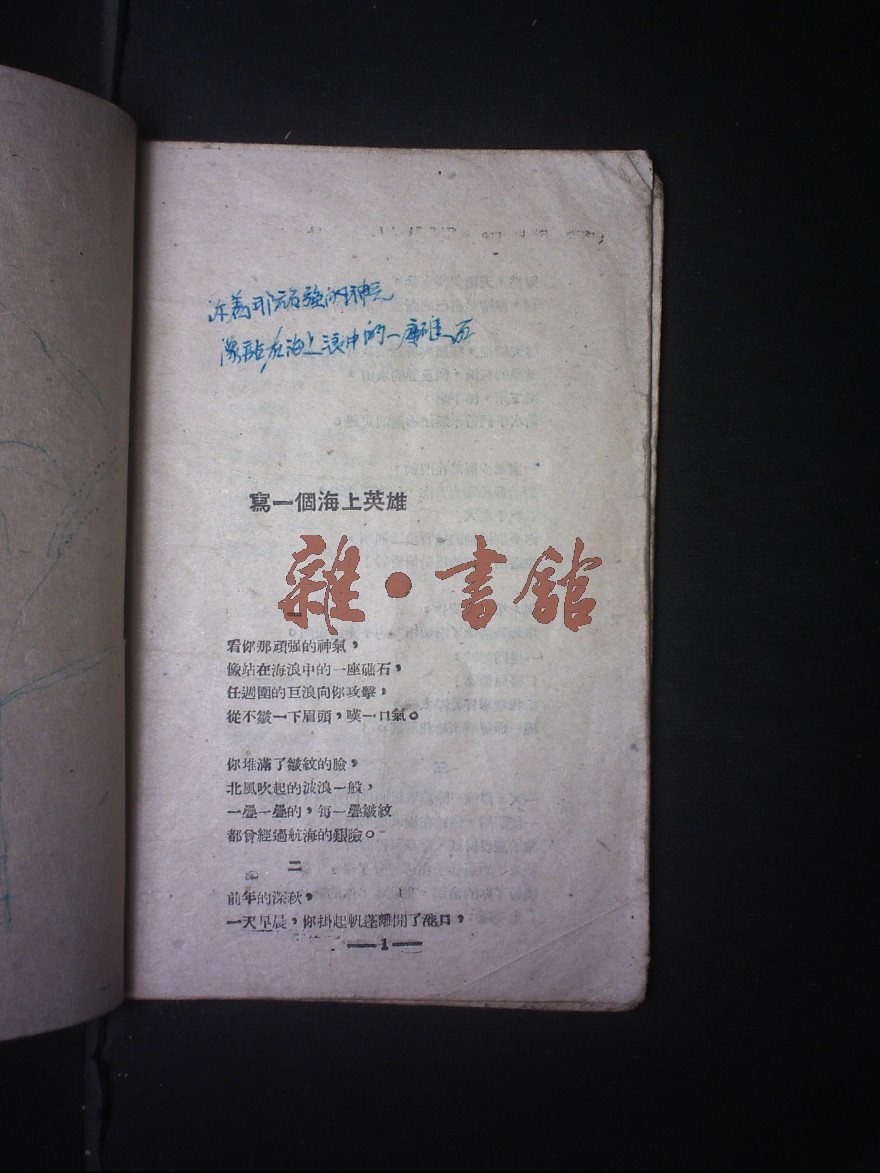 那頑强的神气
像站在海上浪中的一座礁石
寫一個海上英雄
雜·書館
一
看你那頑强的神氣，
像站在海浪中的一座礁石，
任週圍的巨浪向你攻擊，
從不皺一下眉頭，嘆一口氣。
你堆滿了皺紋的臉，
北風吹起的波浪一般，
一疊一疊的，每一疊皺紋
都曾經過航海的艱險。
二
前年的深秋，
一天早晨，你掛起帆蓬離開了港口，
—1—